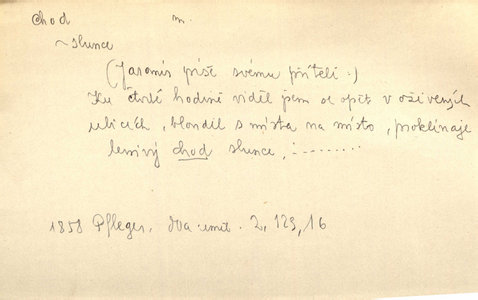 chod m.
~ slunce
(Jaromír píše svému příteli.)
Ku čtvrté hodině viděl jsem se opět v oživených
ulicích, bloudil s místa na místo, proklínaje
lenivý chod slunce, .........
1858 Pfleger, dva umě. 2, 123, 16